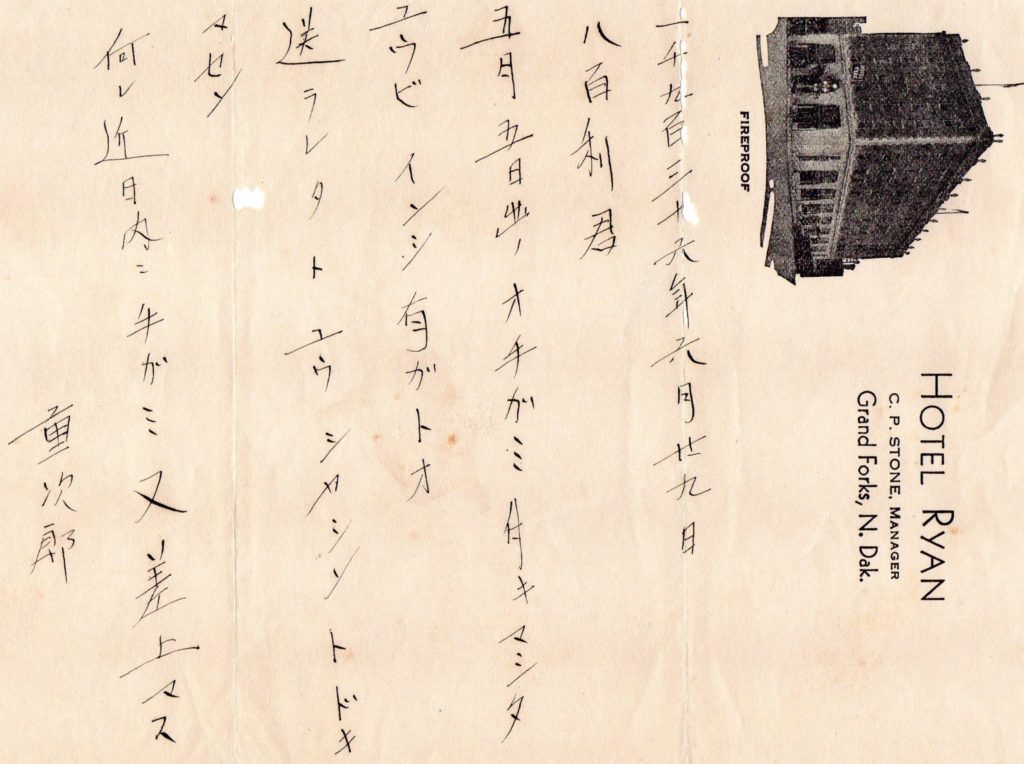 HOTEL RYAN
C. P. STONE, MANAGER
Grand Forks, N. Dak.
FIREPROOF
一千九百三十六年六月廿九日
八百利君
五月五日出ノオ手ガミ月キマシタ
ユウビインシ有ガトオ
送ラレタトユウシヤシントドキ
マセン
何レ近日内ニ手ガミ又差上マス
重次郎